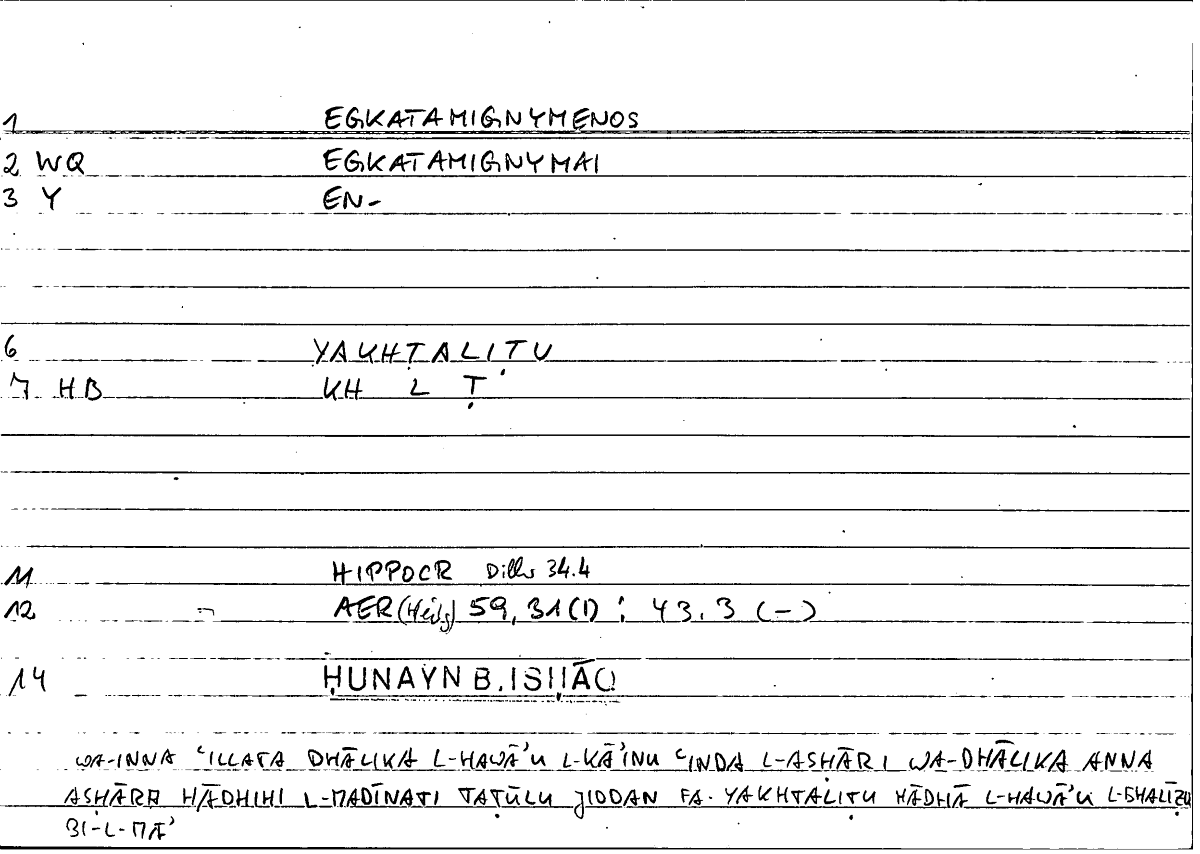 1 EGKATAMIGNYMENOS
2 WQ EGKATAMIGNYMAI
3 Y EN-
6 YAKHTALIṬU
7 HB KH L Ṭ
11 HIPPOCR Diller 34.4
12 AER (Heibg) 59, 31 (1) : 43.3 (-)
14 ḤUNAYN B. ISḤĀQ
WA-INNA ʿILLATA DHĀLIKA L-HAWĀʾU L-KĀʾINU ʿINDA L-ASḤĀRI WA-DHĀLIKA ANNA
ASḤĀRA HĀDHIHI L-MADĪNATI TAṬŪLU JIDDAN FA-YAKHTALIṬU HĀDHĀ L-HAWĀʾU L-GHALĪẒU
BI-L-MĀʾ